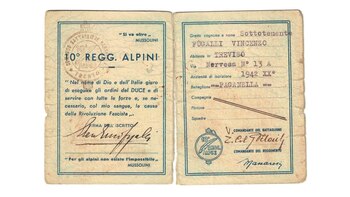 "Si va oltre"
MUSSOLINI
10° REGG. ALPINI
"Nel nome di Dio e dell'Italia giuro
di eseguire gli ordini del DUCE e di
servire con tutte le forze e, se neces-
sario, col mio sangue, la causa
della Rivoluzione Fascista"
FIRMA DELL'ISCRITTO
"Per gli alpini non esiste l'impossibile"
MUSSOLINI
Grado cognome e nome Sottotenente
FUGALLI VINCENZO
Abitante in TREVISO
Via Nervesa N° 13 A
Anzianità di iscrizione 1942 XX°
Battaglione PAGANELLA
Compagnia
Plotone
Squadra
V° COMANDANTE DEL BATTAGLIONE
IL COMANDANTE DEL REGGIMENTO
Manaresi